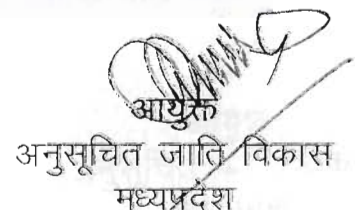 आयुक्त
अनुसूचित जाति विकास
मध्यप्रदेश